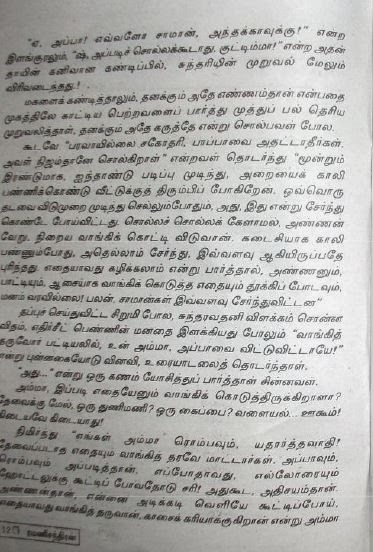 "ஏ, அப்பா! எவ்வளோ சாமான், அந்தக்காவுக்கு!" என்ற
இளங்குரலும், "ஷ், அப்படிச் சொல்லக்கூடாது, குட்டிம்மா!" என்ற அதன்
தாயின் கனிவான கண்டிப்பில், சுந்தரியின் முறுவல் மேலும்
விரிவடைந்தது!
மகளைக் கண்டித்தாலும், தனக்கும் அதே எண்ணம்தான் என்பதை
முகத்திலே காட்டிய பெற்றவளைப் பார்த்து முத்துப் பல தெரிய
முறுவலித்தாள், தனக்கும் அதே கருத்தே என்று சொல்பவள் போல.
கூடவே "பரவாயில்லை சகோதரி, பாப்பாவை அதட்டாதீர்கள்.
அவள் நிஜம்தானே சொல்கிறாள்" என்றவள் தொடர்ந்து "மூன்றும்
இரண்டுமாக, ஐந்தாண்டு படிப்பு முடிந்து, அறையைக் காலி
பண்ணிக்கொண்டு வீட்டுக்குத் திரும்பிப் போகிறேன். ஒவ்வொரு
தடவை விடுமுறை முடிந்து செல்லும்போதும், அது, இது என்று சேர்ந்து
கொண்டே போய்விட்டது. சொல்லச் சொல்லக் கேளாமல், அண்ணன்
வேறு, நிறைய வாங்கிக் கொட்டி விடுவான். கடைசியாக காலி
பண்ணும்போது, அதெல்லாம் சேர்ந்து, இவ்வளவு ஆகியிருப்பதே
புரிந்தது. எதையாவது கழிக்கலாம் என்று பார்த்தால், அண்ணனும்,
பாட்டியும், ஆசையாக வாங்கிக் கொடுத்த எதையும் தூக்கிப் போடவும்,
மனம் வரவில்லை! பலன், சாமான்கள் இவ்வளவு சேர்ந்துவிட்டன"
தப்புச் செய்துவிட்ட சிறுமி போல, சுந்தரவதனி விளக்கம் சொன்ன
விதம், எதிர்சீட் பெண்ணின் மனதை இளக்கியது போலும் "வாங்கித்
தருவோர் பட்டியலில், உன் அம்மா, அப்பாவை விட்டுவிட்டாயே!"
என்று புன்னகையோடு வினவி, உரையாடலைத் தொடர்ந்தாள்.
"அது..." என்று ஒரு கணம் யோசித்துப் பார்த்தாள் சின்னவள்.
அம்மா, இப்படி எதையேனும் வாங்கிக் கொடுத்திருக்கிறாளா?
தேவைக்கு மேல், ஒரு துணிமணி? ஒரு கைப்பை? வளையல்... ஊகூம்!
கிடையவே கிடையாது!
நிமிர்ந்து "எங்கள் அம்மா ரொம்பவும், யதார்த்தவாதி!
தேவைப்படாத எதையும் வாங்கித் தரவே மாட்டார்கள். அப்பாவும்,
ரொம்பவும் அப்படித்தான். எப்போதாவது, எல்லோரையும்
ஹோட்டலுக்கு கூட்டிப் போவதோடு சரி! அதுகூட, அதிசயம்தான்.
அண்ணன்தான், என்னை அடிக்கடி வெளியே கூட்டிப்போய்,
எதையாவது வாங்கித் தருவான். காசைக் கரியாக்குகிறான் என்று அம்மா
12 ரமணிசந்திரன்